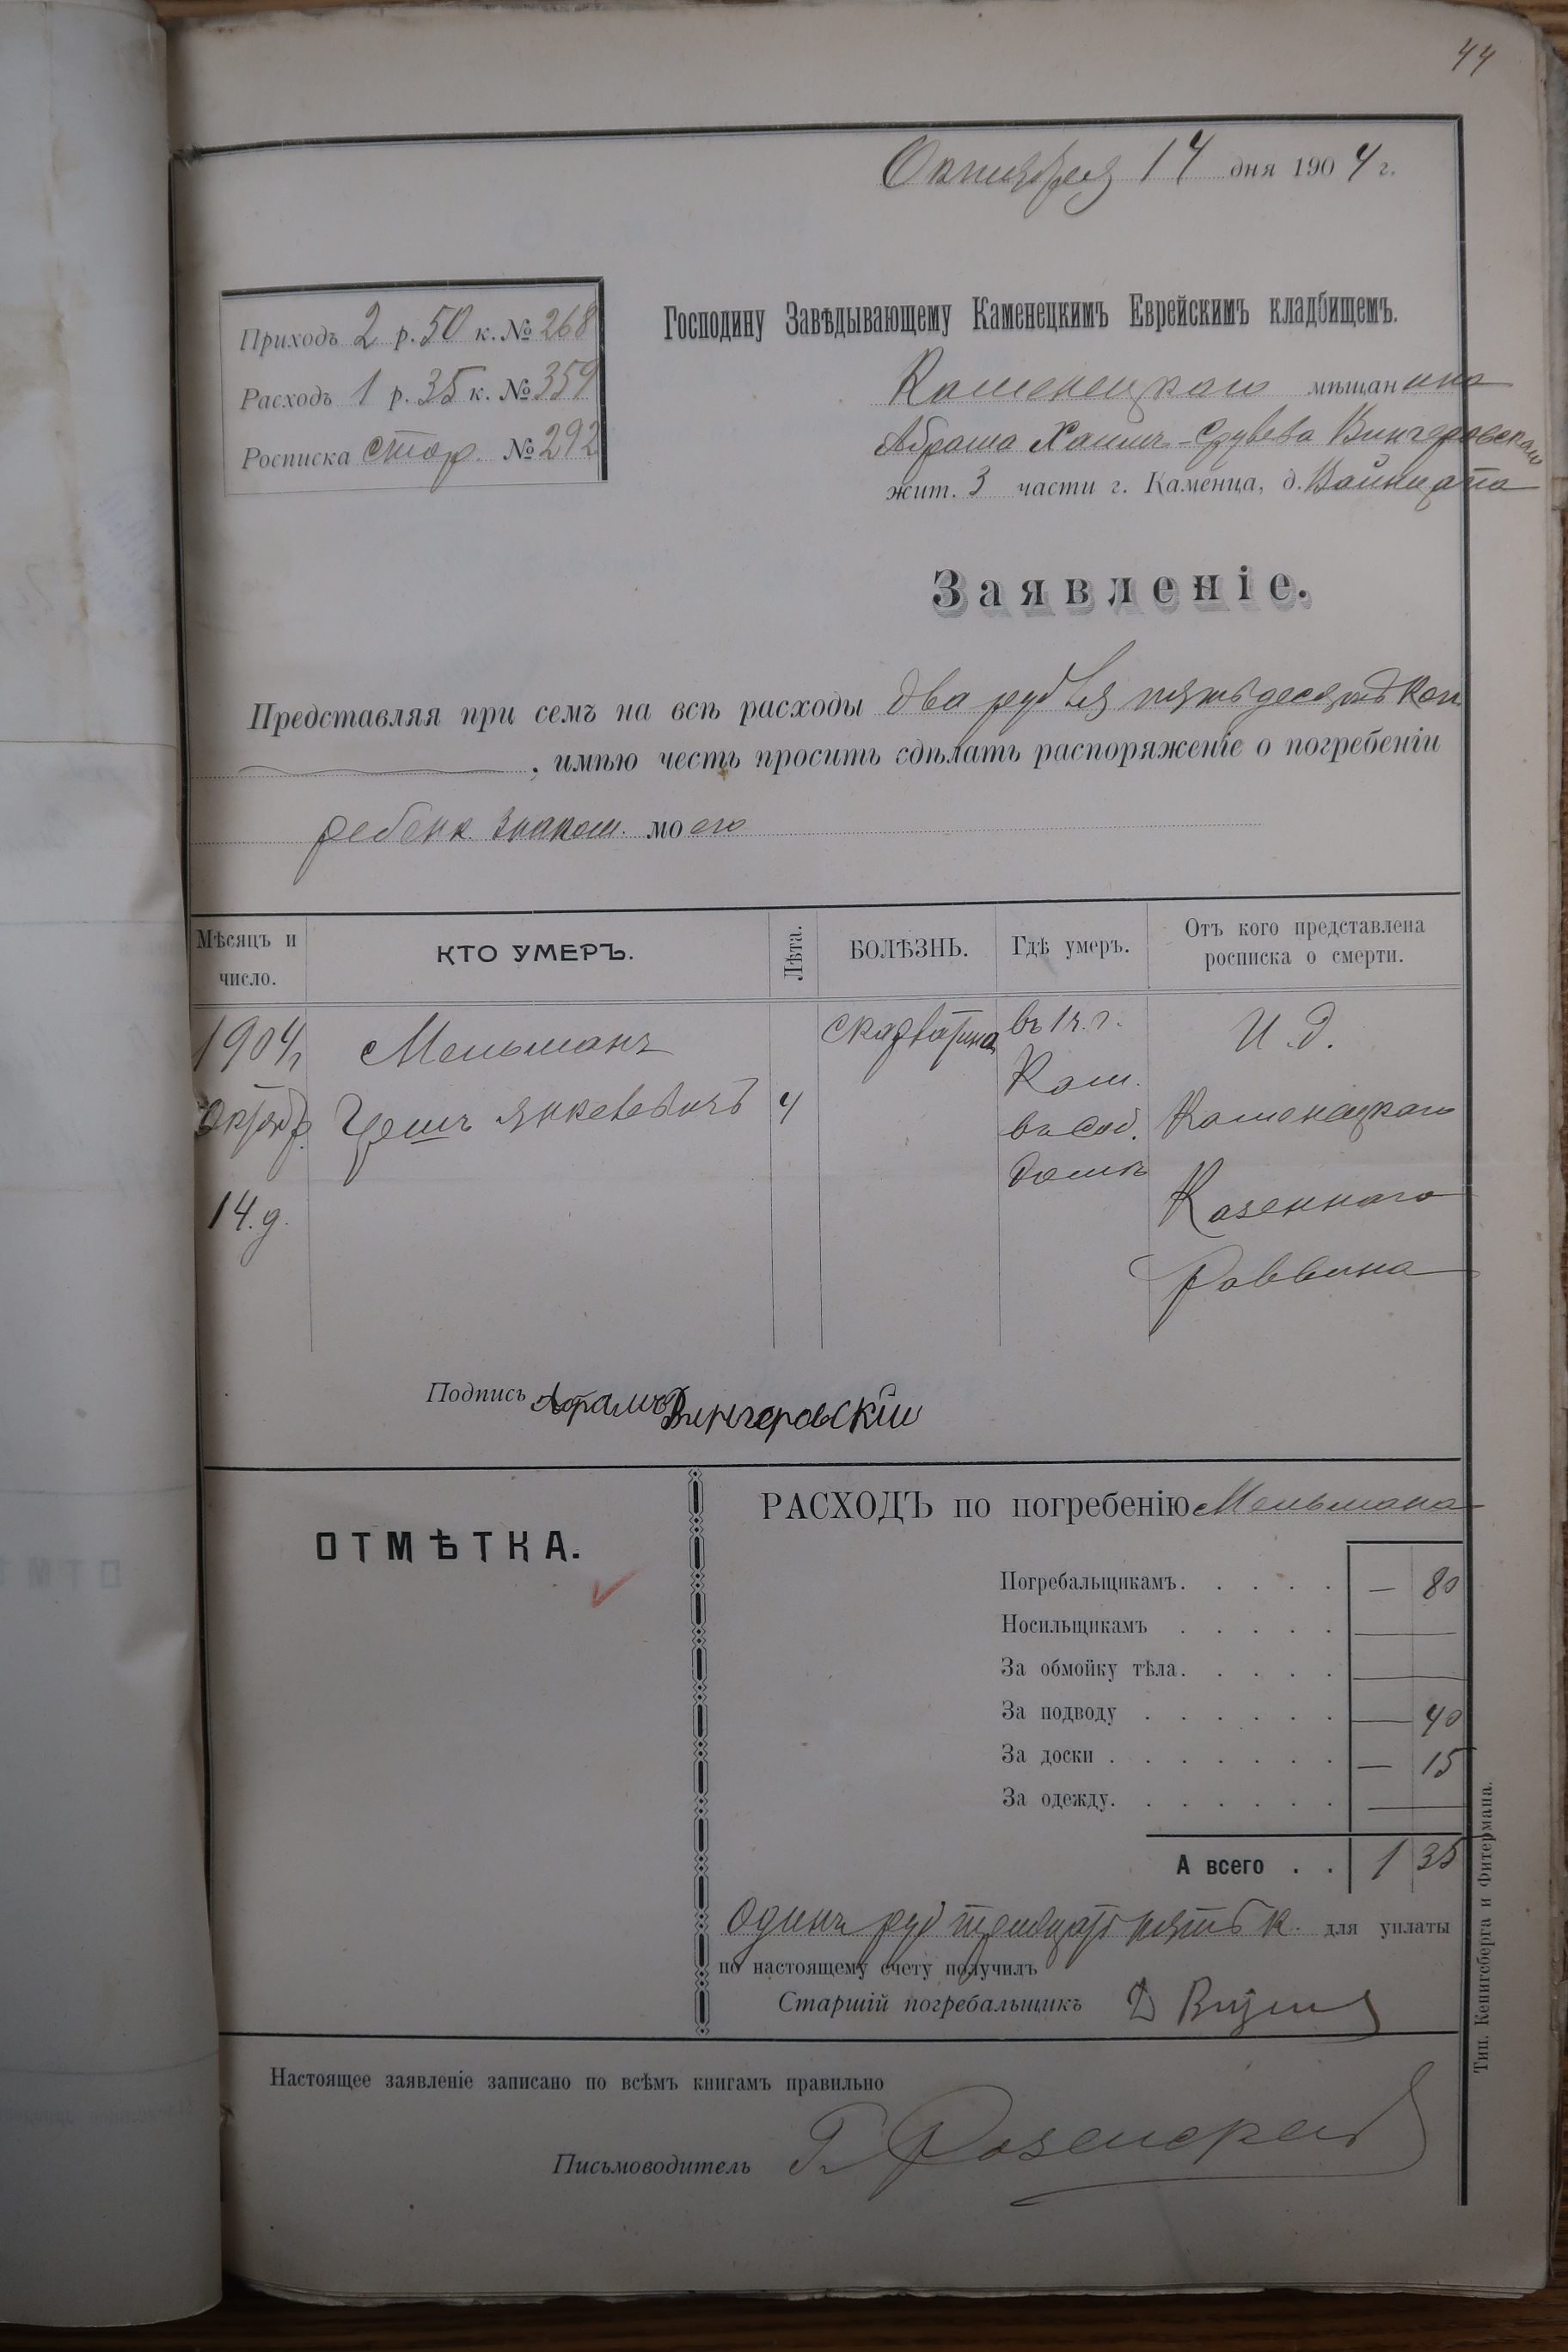 44
Октября 14 дня 1904 г.
Приходъ 2 р. 50 к. № 268
Расходъ 1 р. 35 к. № 359
Росписка стор. № 292
Господину Завѣдывающему Каменецкимъ Еврейскимъ кладбищемъ.
Каменецкаго мѣщанина
Абрама Хаимъ-Срулева Винчеровскаго
жит. 3 части г. Каменца, д. Вайнцата
Заявленіе.
Представляя при семъ на всѣ расходы два рубля пятьдесятъ коп.
, имѣю честь просить сдѣлать распоряженіе о погребеніи
ребенк. знаком. моего
Мѣсяцъ и число.
КТО УМЕРЪ.
Лѣта.
БОЛѢЗНЬ.
Гдѣ умеръ.
Отъ кого представлена росписка о смерти.
1904 г.
Мельманъ
скарлатина
въ 1 ч. г.
И. Д.
Октябр.
Янкелевичъ
4
Кам.
въ соб.
Каменецкаго
14 д.
домѣ
Казеннаго
Раввина
Подпись Абрамъ Винчеровскій
ОТМѢТКА.
РАСХОДЪ по погребенію Мельмана
Погребальщикамъ. . . . . — 80
Носильщикамъ . . . . . —
За обмойку тѣла. . . . . —
За подводу . . . . . . — 40
За доски . . . . . . . — 15
За одежду. . . . . . . —
А всего . . 1 35
Одинъ руб тридцать пять к. для уплаты
по настоящему счету получилъ
Старшій погребальщикъ Д
Настоящее заявленіе записано по всѣмъ книгамъ правильно
Письмоводитель Г.
Тип. Кенигсберга и Фитермана.